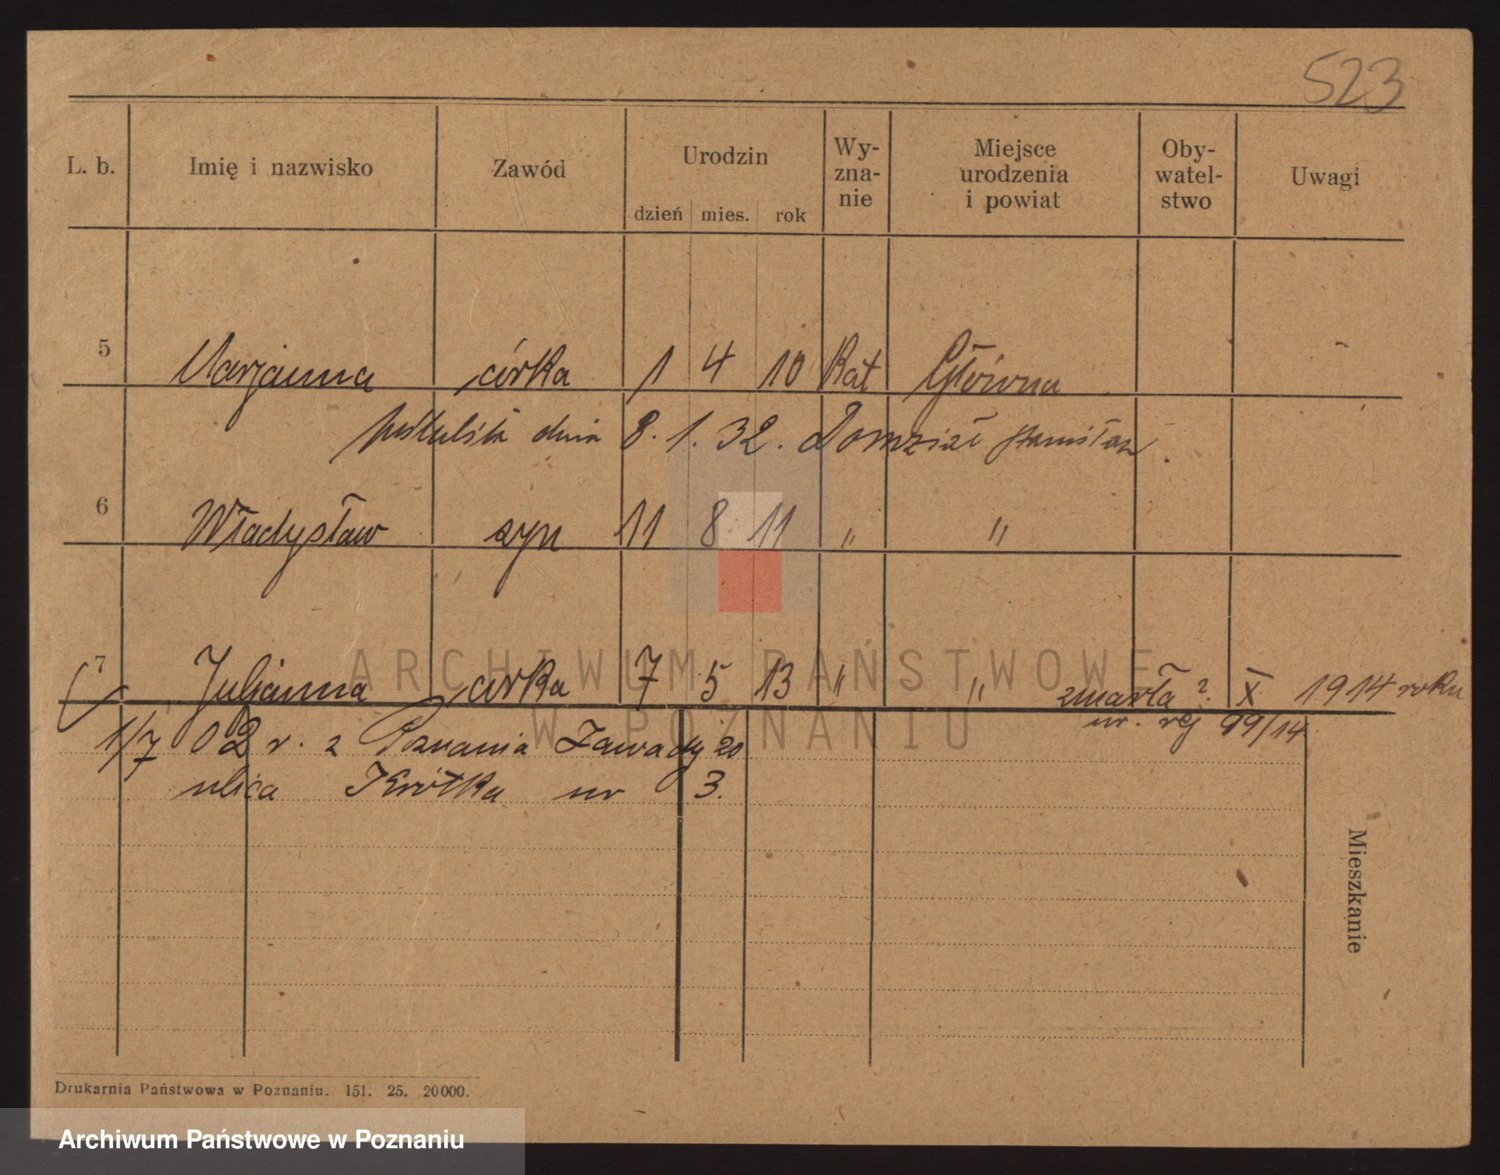 523
L. b. Imię i nazwisko Zawód Urodzin Wy-zna-nie Miejsce urodzenia i powiat Oby-watel-stwo Uwagi
dzień mies. rok
5 Marjanna córka 1 4 10 Kat Główna
poślubiła dnia 8. 1. 32. Stanisław.
6 Władysław syn 11 8 11 " "
7 Juljanna córka 7 5 13 " " zmarła ? X 1914 roku
nr. rej 99/14
1/7 02 r. z Poznania Zawady 20
ulica Krótka nr 3.
Mieszkanie
ARCHIWUM PAŃSTWOWE
W POZNANIU
Drukarnia Państwowa w Poznaniu. 151. 25. 20000.
Archiwum Państwowe w Poznaniu